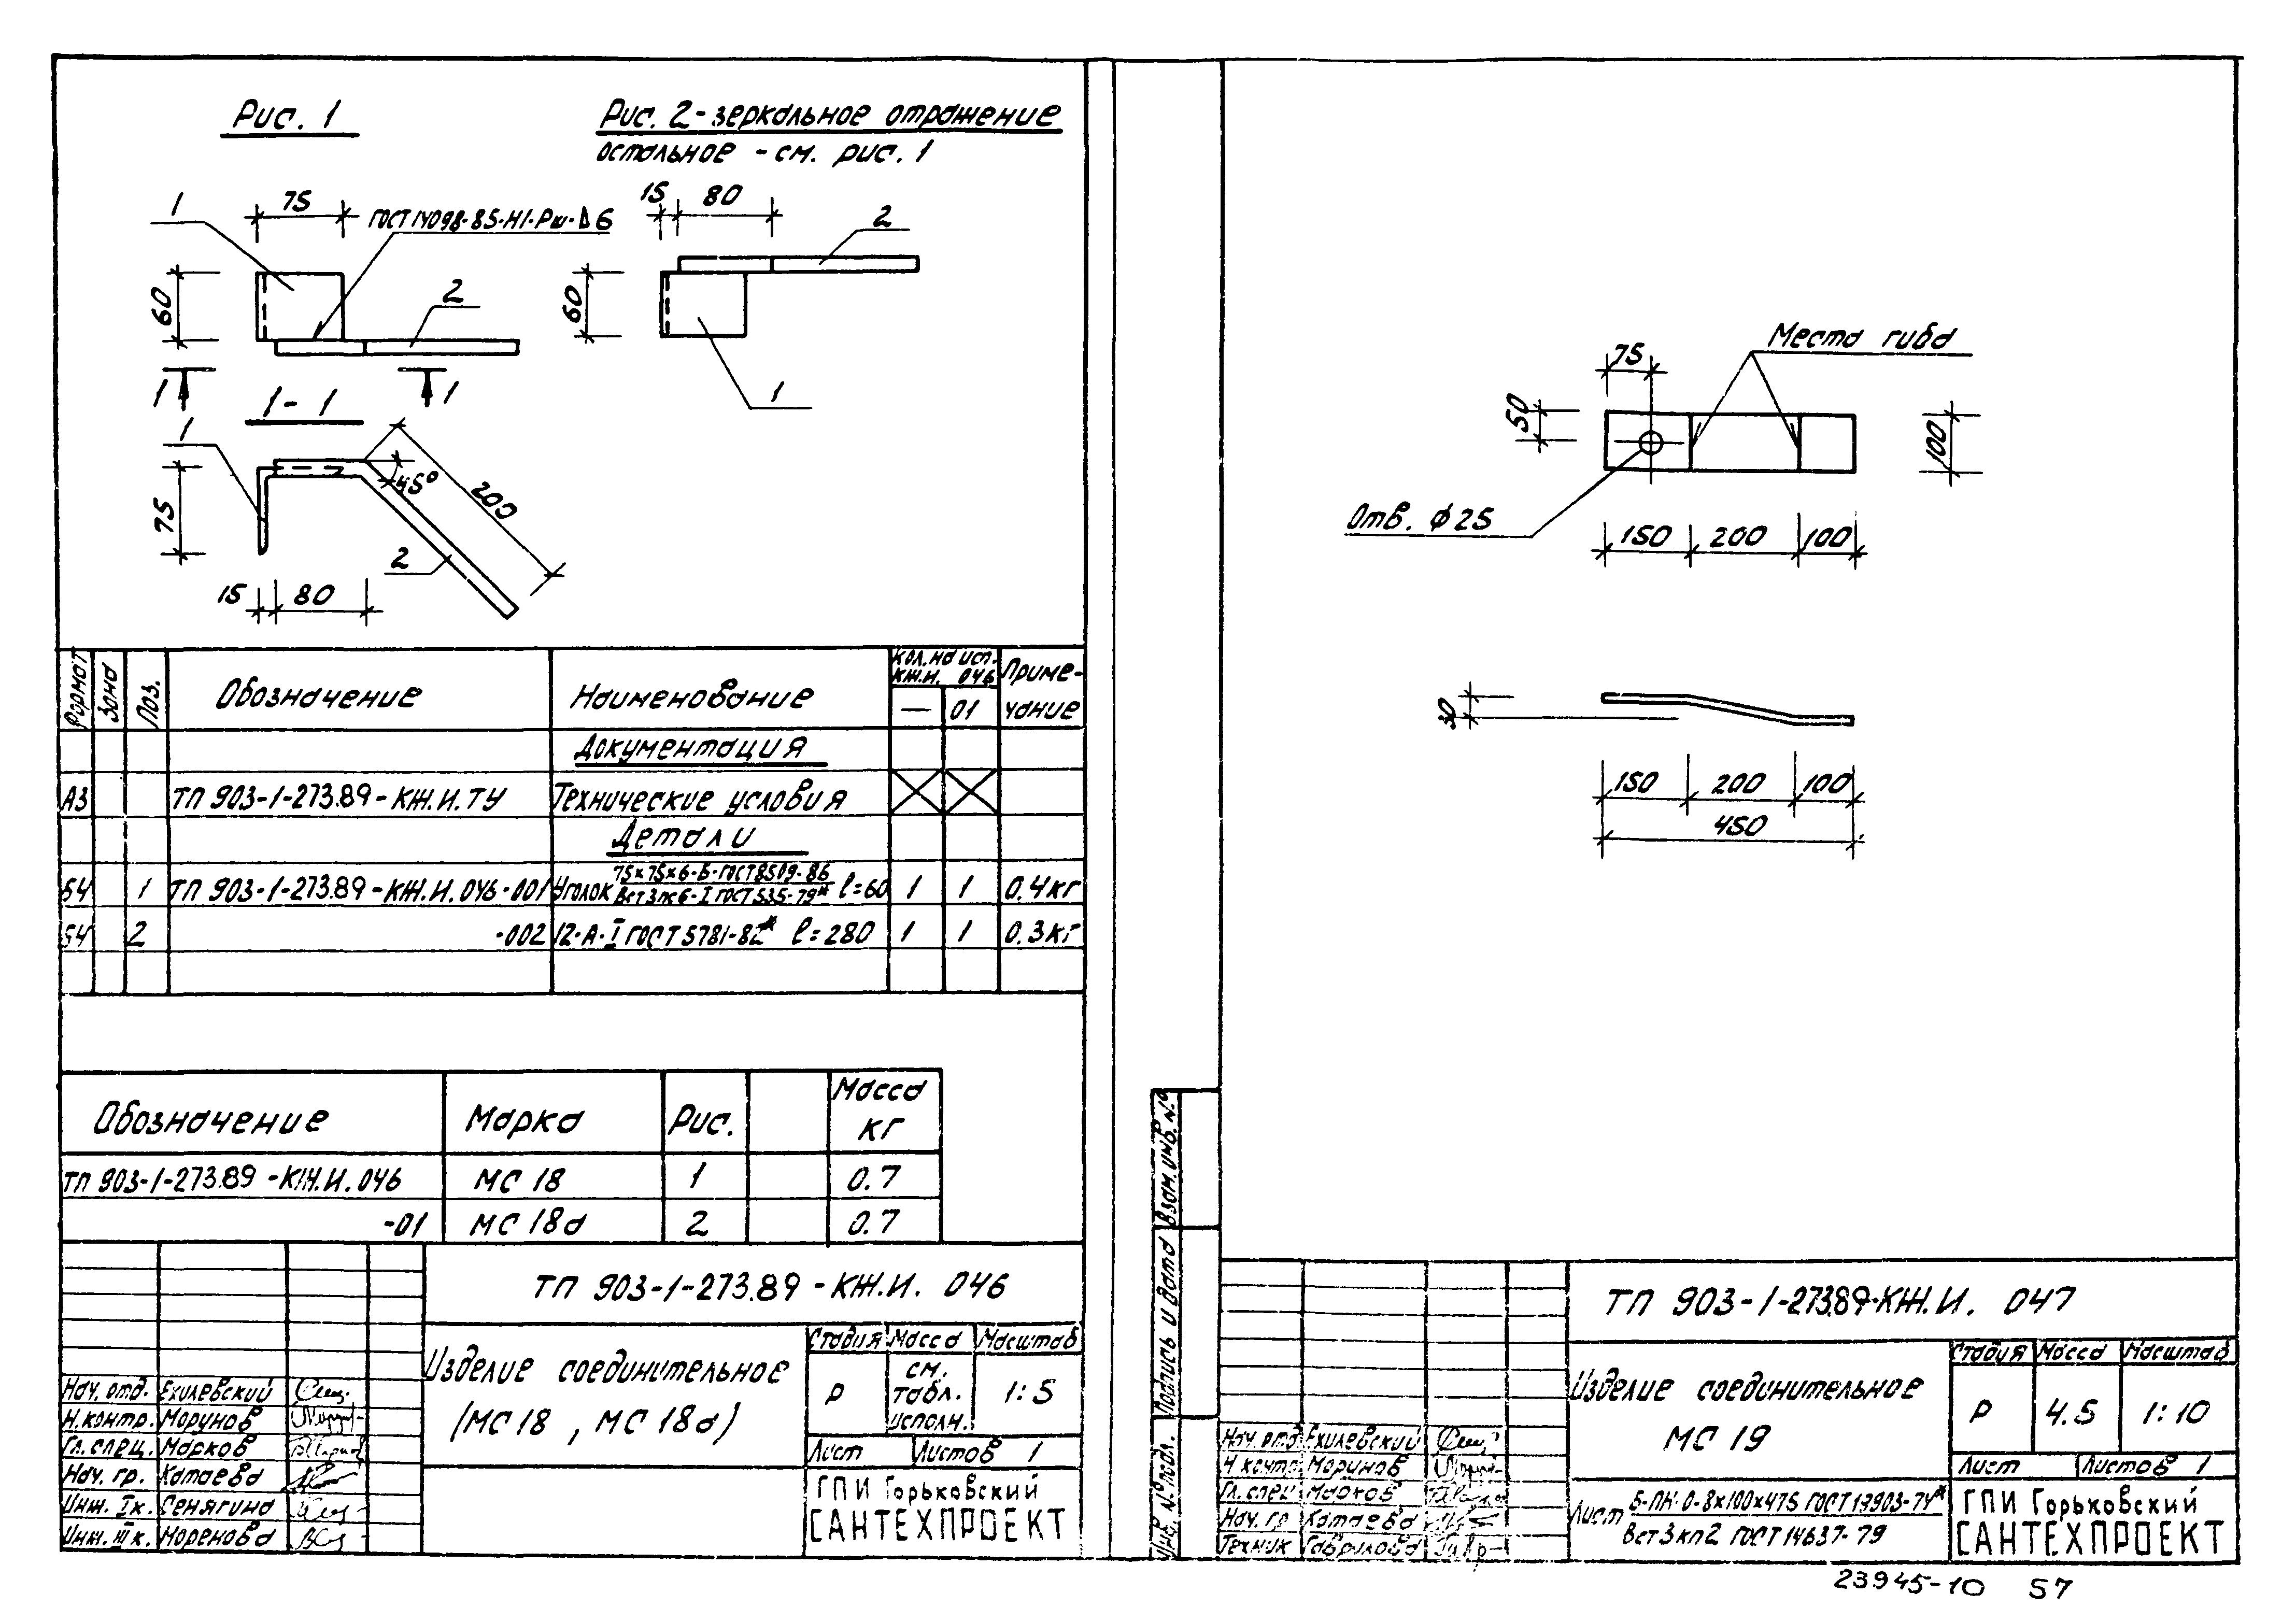 Рис. 1
Рис. 2 - зеркальное отражение
остальное - см. рис. 1
1
75
ГОСТ 14098-85-Н1-Рш-Δ6
60
2
1
1
15
80
2
60
1
1-1
1
75
45°
200
2
15
80
Формат
Зона
Поз.
Обозначение
Наименование
Кол. на исп.
КЖ.И. 046
—
01
Приме-
чание
Документация
А3
ТП 903-1-273.89-КЖ.И.ТУ
Технические условия
Детали
Б4 1 ТП 903-1-273.89-КЖ.И.046-001 Уголок 75х75х6-Б-ГОСТ 8509-86 / Вст3пс6-I ГОСТ 535-79* ℓ=60 1 1 0.4кг
Б4 2 -002 12-А-I ГОСТ 5781-82* ℓ=280 1 1 0.3кг
Обозначение Марка Рис. Масса кг
ТП 903-1-273.89-КЖ.И.046 МС 18 1 0.7
-01 МС 18а 2 0.7
ТП 903-1-273.89-КЖ.И. 046
Изделие соединительное
(МС 18, МС 18а)
Стадия Масса Масштаб
Р
см.
табл.
исполн.
1:5
Лист Листов 1
Нач. отд. Ехилевский
Н.контр. Морунов
Гл. спец. Марков
Нач. гр. Катаева
Инж. Iк. Сенягина
Инж. IIIк. Моренова
ГПИ Горьковский
САНТЕХПРОЕКТ
Места гиба
75
50
100
Отв. ф25
150 200 100
30
150 200 100
450
Взам. инв. №
Подпись и дата
Инв. № подл.
ТП 903-1-273.89-КЖ.И. 047
Изделие соединительное
МС 19
Стадия Масса Масштаб
Р 4.5 1:10
Лист Листов 1
Нач. отд. Ехилевский
Н. контр. Морунов
Гл. спец Марков
Нач. гр Катаева
Техник Гаврилова
Лист Б-ПН-0-8х100х475 ГОСТ 19903-74*
Вст3кп2 ГОСТ 14637-79
ГПИ Горьковский
САНТЕХПРОЕКТ
23945-10 57